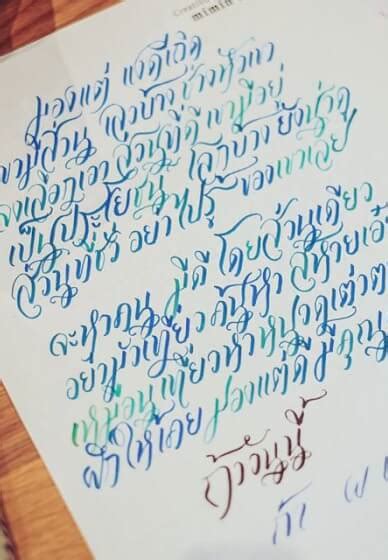 mimin
มองแต่ แง่ดีเถิด
เขามีส่วน เลวบ้าง ช่างหัวเขา
จงเลือกเอา ส่วนที่ดี เขามีอยู่
เป็นประโยชน์ โลกบ้าง ยังน่าดู
ส่วนที่ชั่ว อย่าไปรู้ ของเขาเลย
จะหาคน มีดี โดยส่วนเดียว
อย่ามัวเที่ยว ค้นหา สหายเอ๋
เหมือนเที่ยวหาหนวดเต่าต
ฝึกให้เคย มองแต่ดี มีคุณ
ถ้าวันนี้